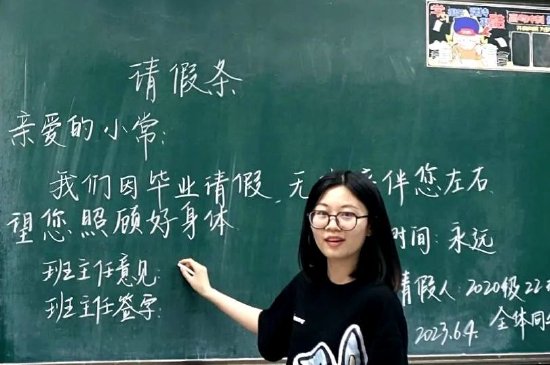 请假条
亲爱的小常:
我们因毕业请假,无 伴您左右
望您照顾好身体
时间:永远
班主任意见:
请假人:2020级22
班主任签字:
2023.6.4. 全体同